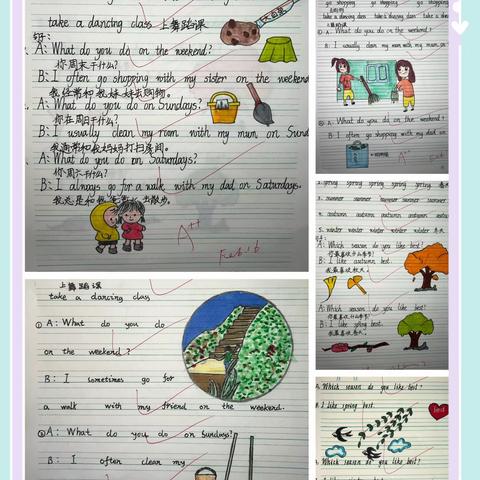 take a dancing class 上舞蹈课
A: What do you do on the weekend?
你周末干什么?
B: I often go shopping with my sister on the weekend
我经常和我妹妹去购物。
A: What do you do on Sundays?
你在周日干什么?
B: I usually clean my room with my mum on Sund
我通常和我妈妈打扫房间。
A: What do you do on Saturdays?
你周六干什么?
B: I always go for a walk with my dad on Saturdays.
我总是和我 出散步。
A++
上舞蹈课
take a dancing class
① A: What do you do
on the weekend?
B: I sometimes go for
a walk with my friend on the weekend.
② A: What do you do on Sundays?
B: I often clean my
go shopping go shopping go shopping go shopping
take a dancing class take a dancing class take a d
① A: What do you do on the weekend?
B: I usually clean my room with my mum on
② A: What do you do on the weekend?
B: I often go shopping with my dad on
A++
spring spring spring spring spring
summer summer summer summer summer
autumn autumn autumn autumn autumn
5. winter winter winter winter winter
A: Which season do you like best?
你最喜欢什么季节?
B: I like autumn best.
我最喜欢秋天。
A: Which season do you like best?
你最喜欢什么季节?
B: I like spring best.
我最喜欢春天。
A: Which season do you like best?
B: I like spring best.
best
A: Which season do you like best?